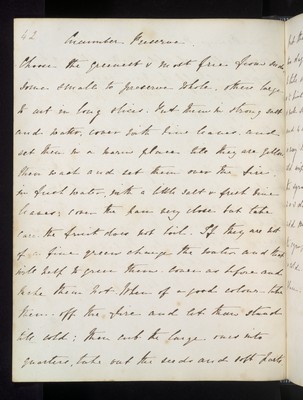 62
Cucumber Preserve
Choose the greenest & most free from seed
some small to preserve whole, others large
to cut in long slices. Put them in strong salt
and water, cover with vine leaves, and
set them in a warm place till they are yellow
then wash and set them over the fire
in fresh water, with a little salt & fresh vine
leaves; cover the pan very close but take
care the fruit does not boil. If they are not
of a fine green change the water and that
will help to green them. cover as before and
make them hot. When of a good colour take
them off the fire and let them stand
till cold; then cut the large ones into
quarters, take out the seeds and soft parts